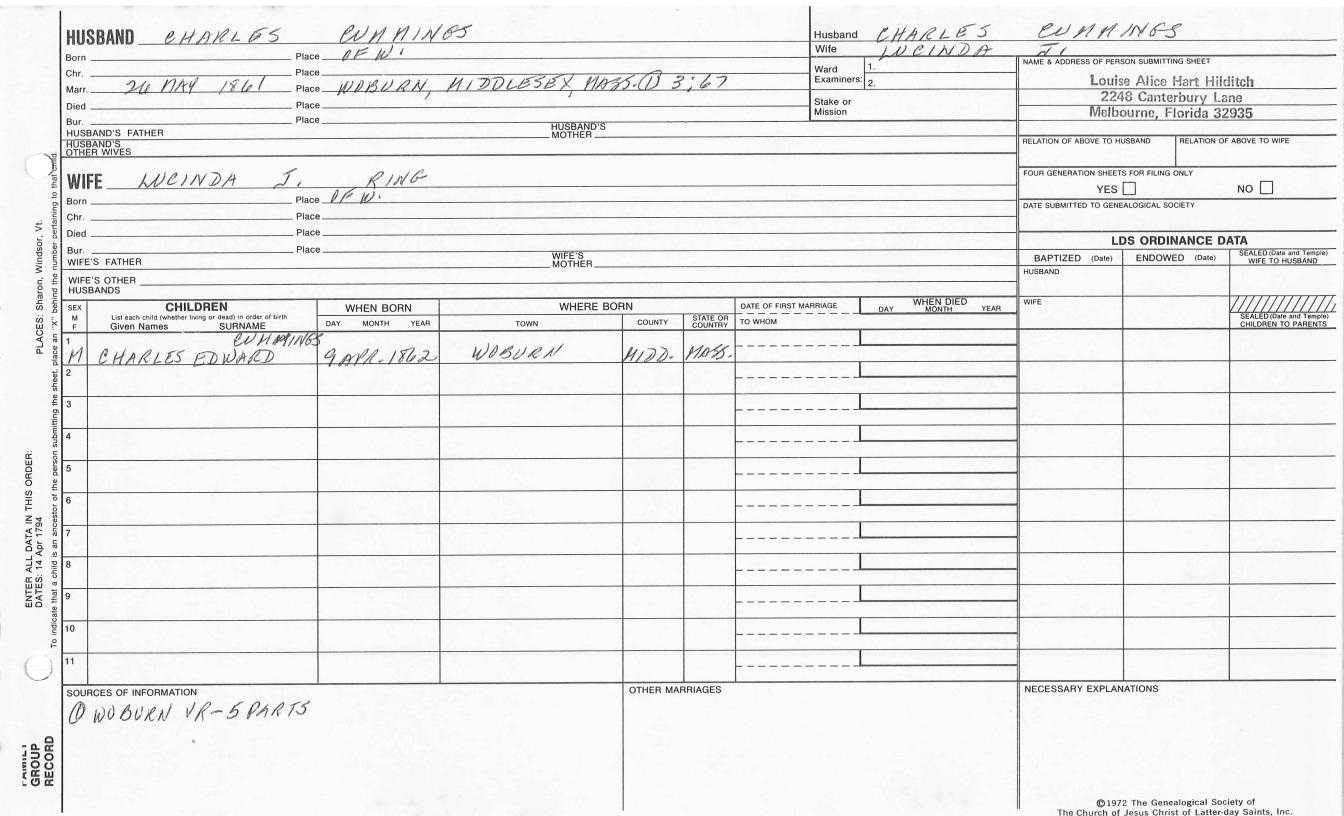 HUSBAND CHARLES CUMMINGS
Born Place OF W.
Chr. Place
Marr. 26 MAY 1861 Place WOBURN, MIDDLESEX, MASS. ① 3:67
Died Place
Bur. Place
HUSBAND'S FATHER HUSBAND'S MOTHER
HUSBAND'S OTHER WIVES
Husband CHARLES CUMMINGS
Wife LUCINDA J.
Ward Examiners: 1. 2.
Stake or Mission
NAME & ADDRESS OF PERSON SUBMITTING SHEET
Louise Alice Hart Hilditch
2248 Canterbury Lane
Melbourne, Florida 32935
RELATION OF ABOVE TO HUSBAND RELATION OF ABOVE TO WIFE
FOUR GENERATION SHEETS FOR FILING ONLY
YES NO
DATE SUBMITTED TO GENEALOGICAL SOCIETY
WIFE LUCINDA J. RING
Born Place OF W.
Chr. Place
Died Place
Bur. Place
WIFE'S FATHER WIFE'S MOTHER
WIFE'S OTHER HUSBANDS
LDS ORDINANCE DATA
BAPTIZED (Date) ENDOWED (Date) SEALED (Date and Temple) WIFE TO HUSBAND
HUSBAND
WIFE
SEALED (Date and Temple) CHILDREN TO PARENTS
SEX M F
CHILDREN
List each child (whether living or dead) in order of birth
Given Names SURNAME
WHEN BORN
DAY MONTH YEAR
WHERE BORN
TOWN COUNTY STATE OR COUNTRY
DATE OF FIRST MARRIAGE
TO WHOM
WHEN DIED
DAY MONTH YEAR
1 CUMMINGS
M CHARLES EDWARD 9 APR. 1862 WOBURN MIDD. MASS.
2
3
4
5
6
7
8
9
10
11
SOURCES OF INFORMATION
① WOBURN VR-5 PARTS
OTHER MARRIAGES
NECESSARY EXPLANATIONS
©1972 The Genealogical Society of
The Church of Jesus Christ of Latter-day Saints, Inc.
ENTER ALL DATA IN THIS ORDER:
DATES: 14 Apr 1794
PLACES: Sharon, Windsor, Vt.
To indicate that a child is an ancestor of the person submitting the sheet, place an "X" behind the number pertaining to that child.
FAMILY
GROUP
RECORD